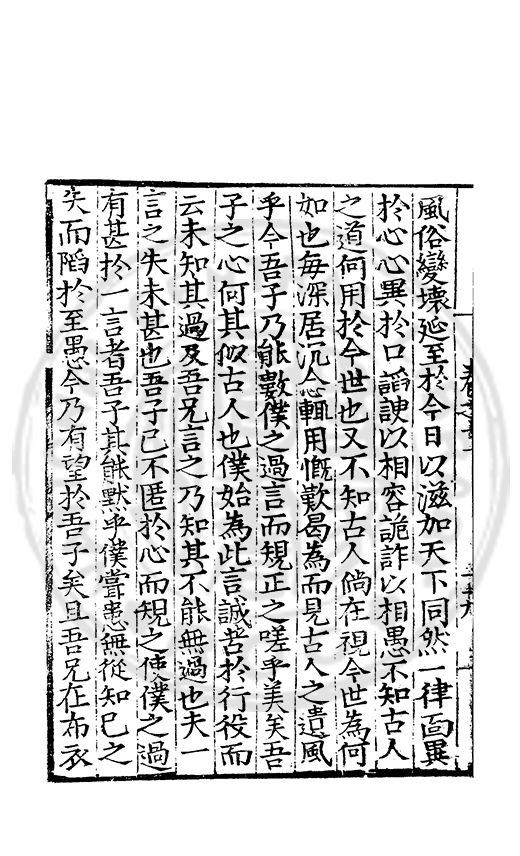 風俗變壞延至於今日以滋加天下同然一律靣異
於心心異於口謟諛以相容詭詐以相愚不知古人
之道何用於今世也又不知古人倘在視今世為何
如也每深居沉念輙用慨歎曷為而見古人之遺風
乎今吾子乃能數僕之過言而規正之嗟乎美矣吾
子之心何其似古人也僕始為此言誠苦於行役而
云未知其過及吾兄言之乃知其不能無過也夫一
言之失未甚也吾子已不匿於心而規之使僕之過
有甚於一言者吾子其能默乎僕嘗患無從知已之
失而陷於至愚今乃有望於吾子矣且吾兄在布衣